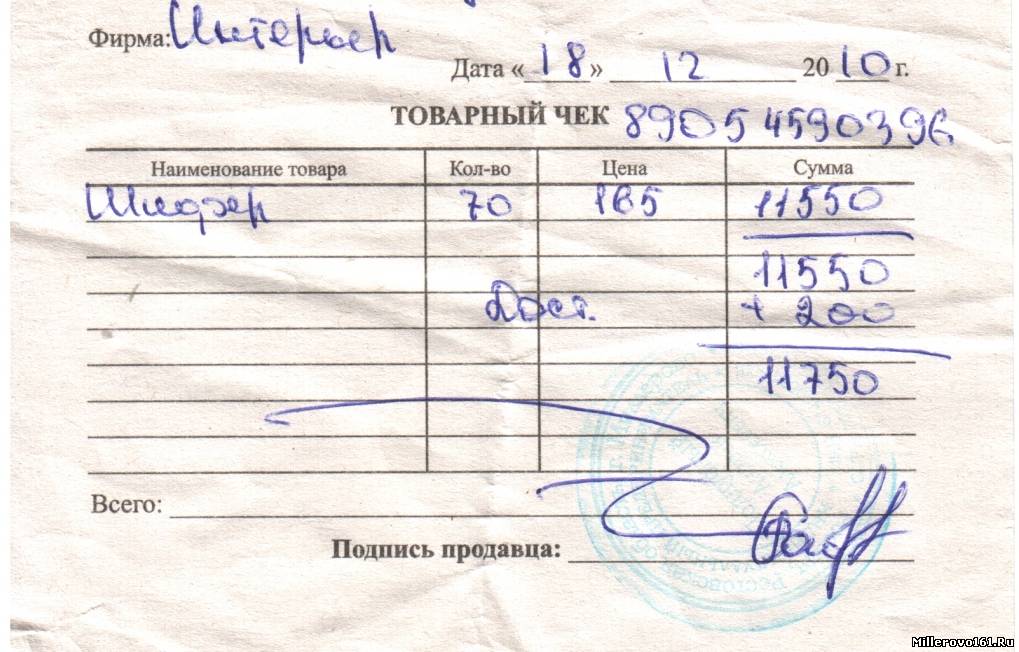 Фирма: Интерьер
Дата «18» 12 2010 г.
ТОВАРНЫЙ ЧЕК 89054590396
Наименование товара Кол-во Цена Сумма
Шифер 70 165 11550
11550
Дост. + 200
11750
Всего:
Подпись продавца:
Ростовская
Millerovo161.Ru